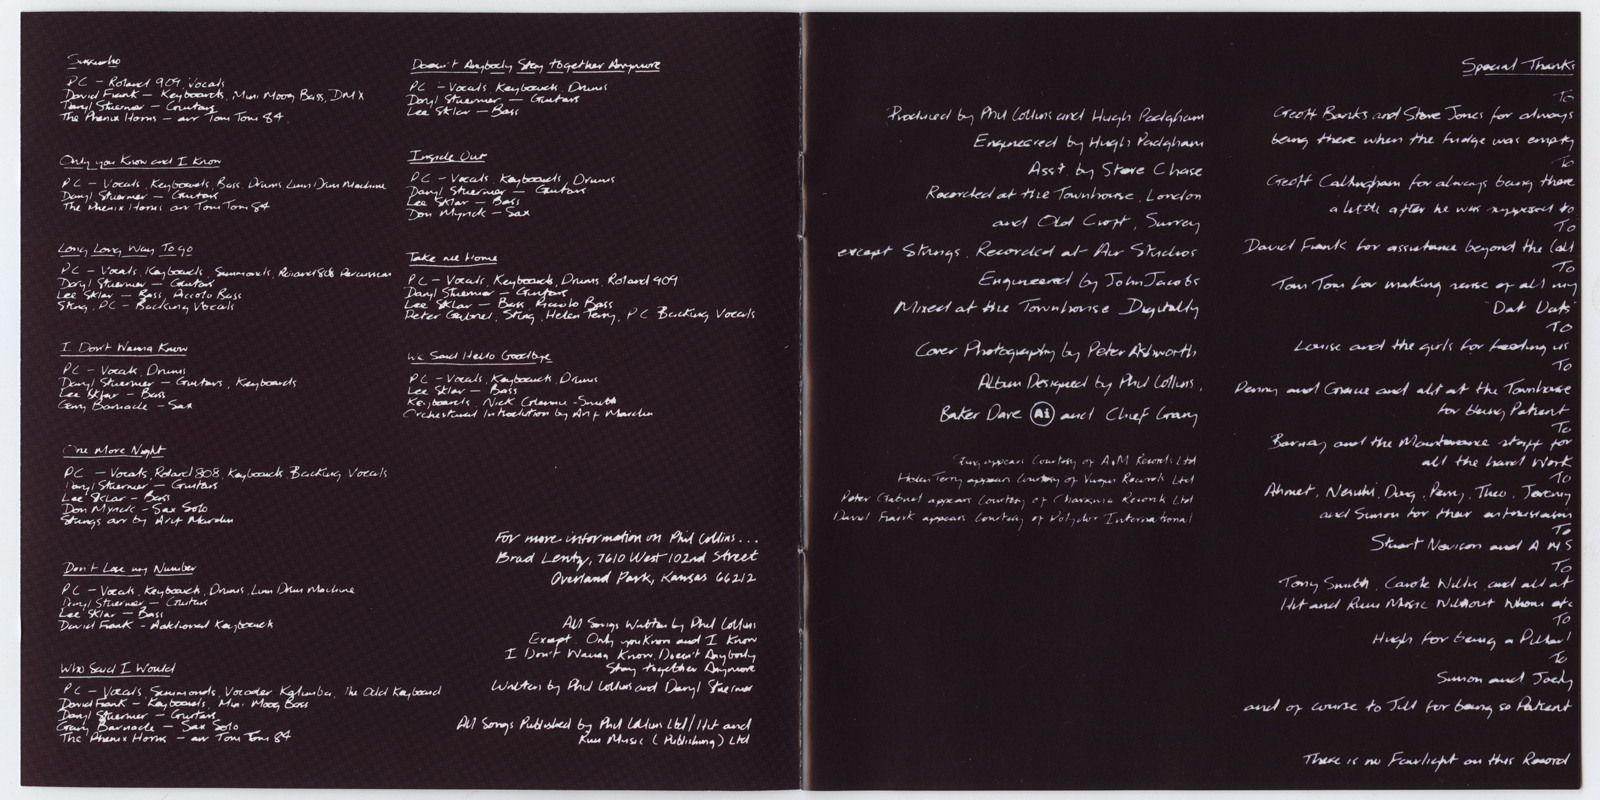 Sussudio
PC - Roland 909, Vocals
David Frank - Keyboards, Mini Moog Bass, DMX
Daryl Stuermer - Guitars
The Phenix Horns - arr Tom Tom 84
Only you Know and I Know
PC - Vocals, Keyboards, Bass, Drums, Linn Drum Machine
Daryl Stuermer - Guitars
The Phenix Horns arr Tom Tom 84
Long Long Way To go
PC - Vocals, Keyboards, Simmonds, Roland 808 Percussion
Daryl Stuermer - Guitar
Lee Sklar - Bass, Piccolo Bass
Sting, PC - Backing Vocals
I Don't Wanna Know
PC - Vocals, Drums
Daryl Stuermer - Guitars, Keyboards
Lee Sklar - Bass
Gary Barnacle - Sax
One More Night
PC - Vocals, Roland 808, Keyboards Backing Vocals
Daryl Stuermer - Guitars
Lee Sklar - Bass
Don Myrick - Sax Solo
Strings arr by Arif Mardin
Don't Lose my Number
PC - Vocals, Keyboards, Drums, Linn Drum Machine
Daryl Stuermer - Guitars
Lee Sklar - Bass
David Frank - Additional Keyboards
Who Said I Would
PC - Vocals Simmonds, Vocoder Kalimba, The Odd Keyboard
David Frank - Keyboards, Mini Moog Bass
Daryl Stuermer - Guitars
Gary Barnacle - Sax Solo
The Phenix Horns - arr Tom Tom 84
Doesn't Anybody Stay together Anymore
PC - Vocals, Keyboards, Drums
Daryl Stuermer - Guitars
Lee Sklar - Bass
Inside Out
PC - Vocals, Keyboards, Drums
Daryl Stuermer - Guitars
Lee Sklar - Bass
Don Myrick - Sax
Take me Home
PC - Vocals, Keyboards, Drums, Roland 909
Daryl Stuermer - Guitars
Lee Sklar - Bass Piccolo Bass
Peter Gabriel, Sting, Helen Terry, PC Backing Vocals
We Said Hello Goodbye
PC - Vocals, Keyboards, Drums
Lee Sklar - Bass
Keyboards, Nick Glennie-Smith
Orchestral Introduction by Arif Mardin
For more information on Phil Collins...
Brad Lentz, 7610 West 102nd Street
Overland Park, Kansas 66212
All Songs Written by Phil Collins
Except. Only you Know and I Know
I Don't Wanna Know, Doesn't Anybody
Stay together Anymore
Written by Phil Collins and Daryl Stuermer
All Songs Published by Phil Collins Ltd/Hit and
Run Music (Publishing) Ltd
Produced by Phil Collins and Hugh Padgham
Engineered by Hugh Padgham
Asst. by Steve Chase
Recorded at the Townhouse, London
and Old Croft, Surrey
except Strings, Recorded at Air Studios
Engineered by John Jacobs
Mixed at the Townhouse Digitally
Cover Photography by Peter Ashworth
Album Designed by Phil Collins,
Baker Dave Ai and Chief Grany
Sting appears Courtesy of A&M Records Ltd
Helen Terry appears Courtesy of Virgin Records Ltd
Peter Gabriel appears Courtesy of Charisma Records Ltd
David Frank appears Courtesy of Polydor International
Special Thanks
To
Geoff Banks and Steve Jones for always
being there when the fridge was empty
To
Geoff Callingham for always being there
a little after he was supposed to
To
David Frank for assistance beyond the Call
To
Tom Tom for making sense of all my
'Dat Dats'
To
Louise and the girls for feeding us
To
Penny and Gracie and all at the Townhouse
for being Patient
To
Barney and the Maintenance staff for
all the hard Work
To
Ahmet, Nesuhi, Doug, Perry, Theo, Jeremy
and Simon for their enthusiasm
To
Stuart Nevison and AMS
To
Tony Smith, Carole Willis and all at
Hit and Run Music Without Whom etc
To
Hugh for being a Pillar!
To
Simon and Joely
and of course to Jill for being so Patient
There is no Fairlight on this Record